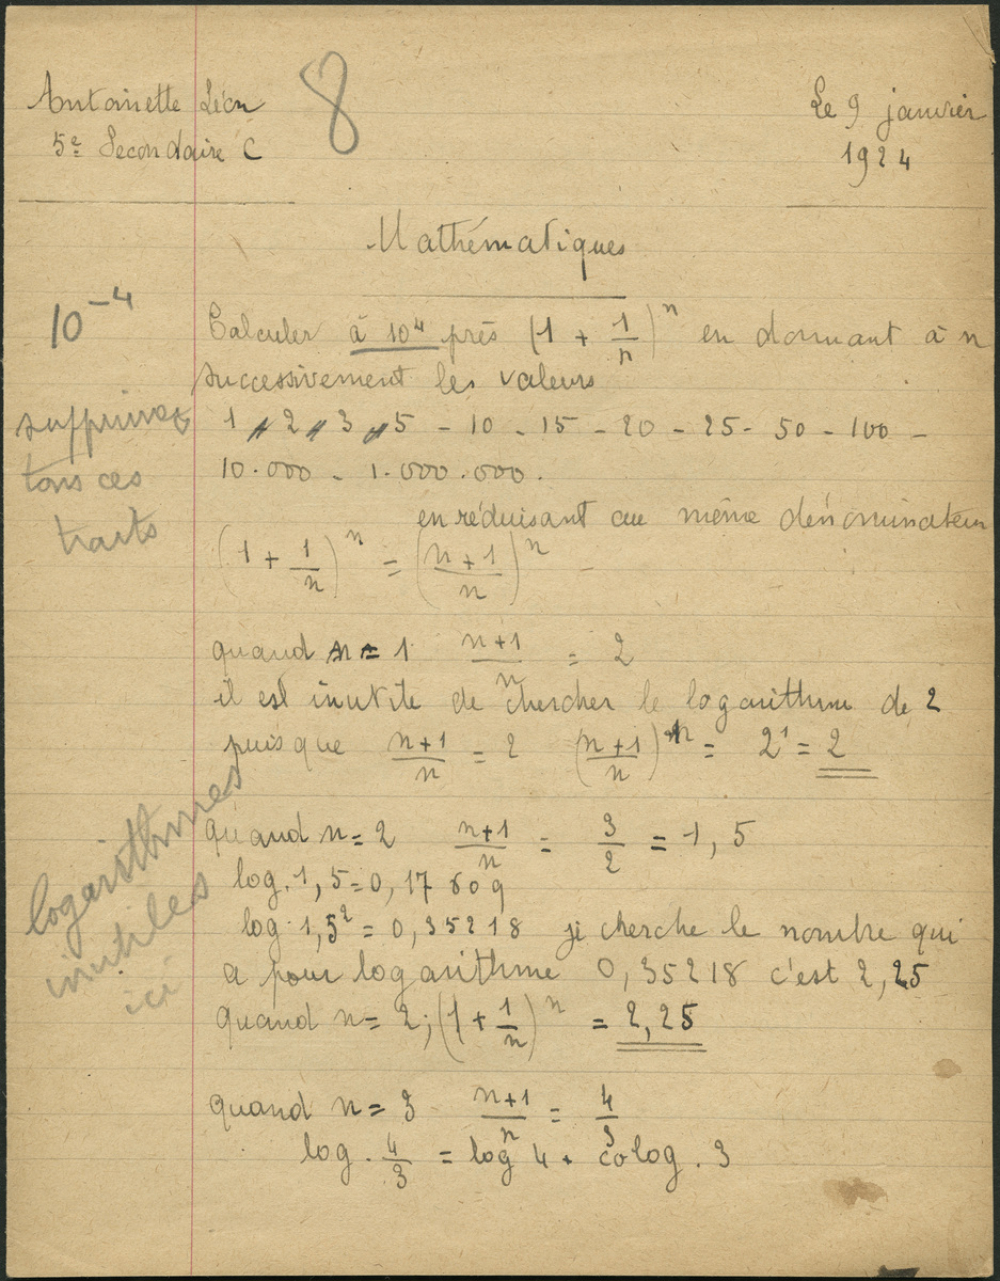 Antoinette Léon
5e Secondaire C
8
Le 9 janvier
1924
Mathématiques
10⁻⁴
Calculer à 10⁴ près (1 + 1/n)ⁿ en donnant à n
successivement les valeurs
supprimez
tous ces
traits
1 - 2 - 3 - 5 - 10 - 15 - 20 - 25 - 50 - 100 -
10.000 - 1.000.000.
en réduisant au même dénominateur
(1 + 1/n)ⁿ = ((n+1)/n)ⁿ
quand n = 1 (n+1)/n = 2
il est inutile de chercher le logarithme de 2
puisque (n+1)/n = 2 ((n+1)/n)ⁿ = 2¹ = 2
logarithmes
inutiles
ici
quand n = 2 (n+1)/n = 3/2 = 1,5
log. 1,5 = 0,17609
log. 1,5² = 0,35218 je cherche le nombre qui
a pour logarithme 0,35218 c'est 2,25
quand n = 2; (1 + 1/n)ⁿ = 2,25
quand n = 3 (n+1)/n = 4/3
log. 4/3 = log 4 + colog. 3